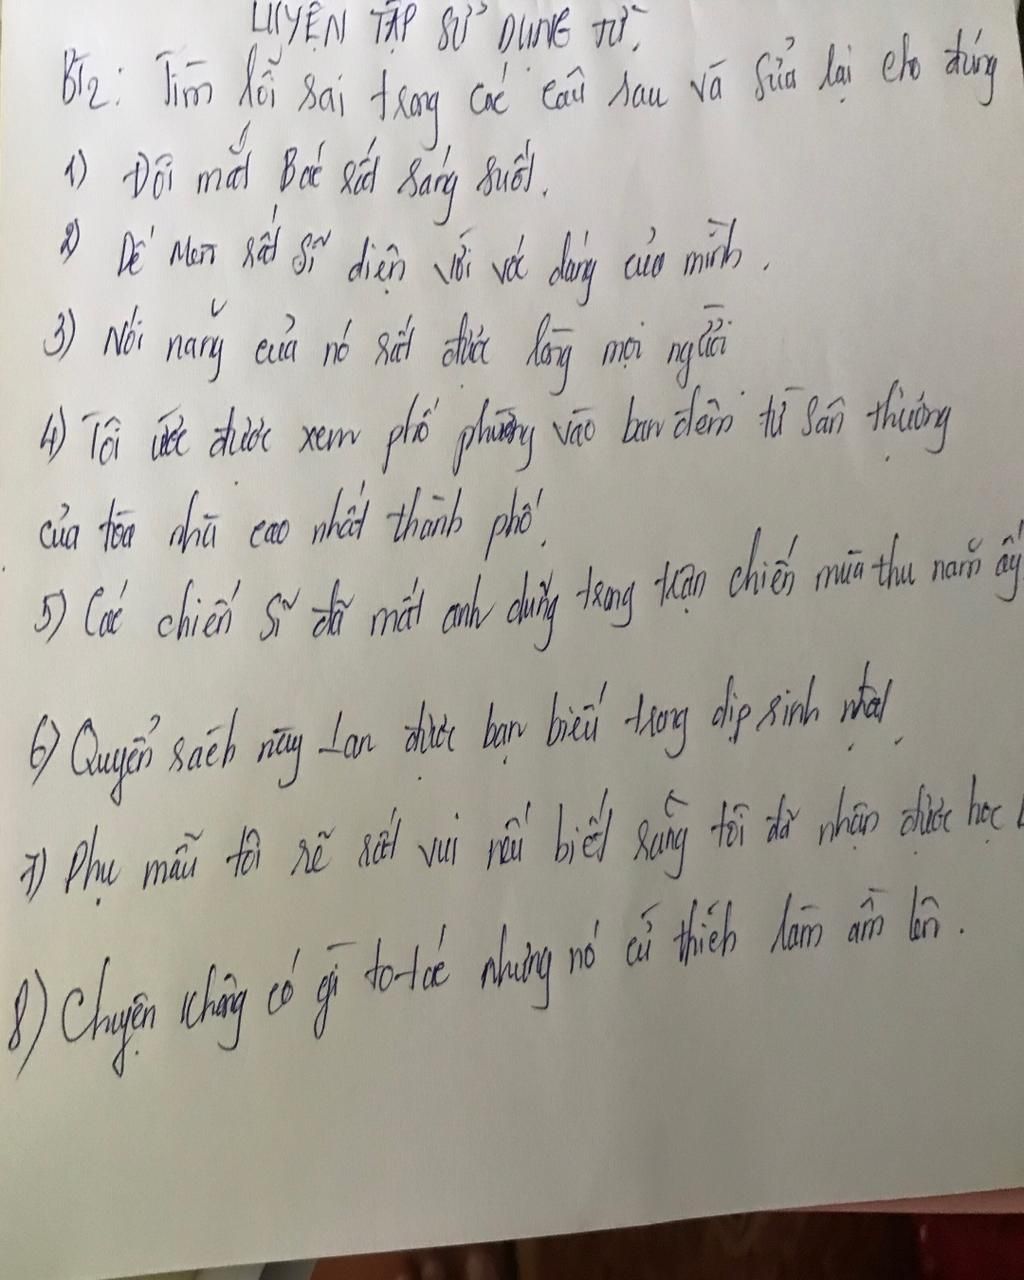 LUYỆN TẬP SỬ DỤNG TỪ.
BT2: Tìm lỗi sai trong các câu sau và sửa lại cho đúng
1) Đôi mắt Bác rất sáng suốt.
2) Dế Mèn rất sĩ diện với vóc dáng của mình.
3) Nói năng của nó rất được lòng mọi người
4) Tôi ước được xem phố phường vào ban đêm từ sân thượng
của tòa nhà cao nhất thành phố.
5) Các chiến sĩ đã mất anh dũng trong trận chiến mùa thu năm ấy
6) Quyển sách này Lan được bạn biếu trong dịp sinh nhật.
7) Phụ mẫu tôi sẽ rất vui nếu biết rằng tôi đã nhận được học
8) Chuyện không có gì to-tác nhưng nó cứ thích làm ầm lên.